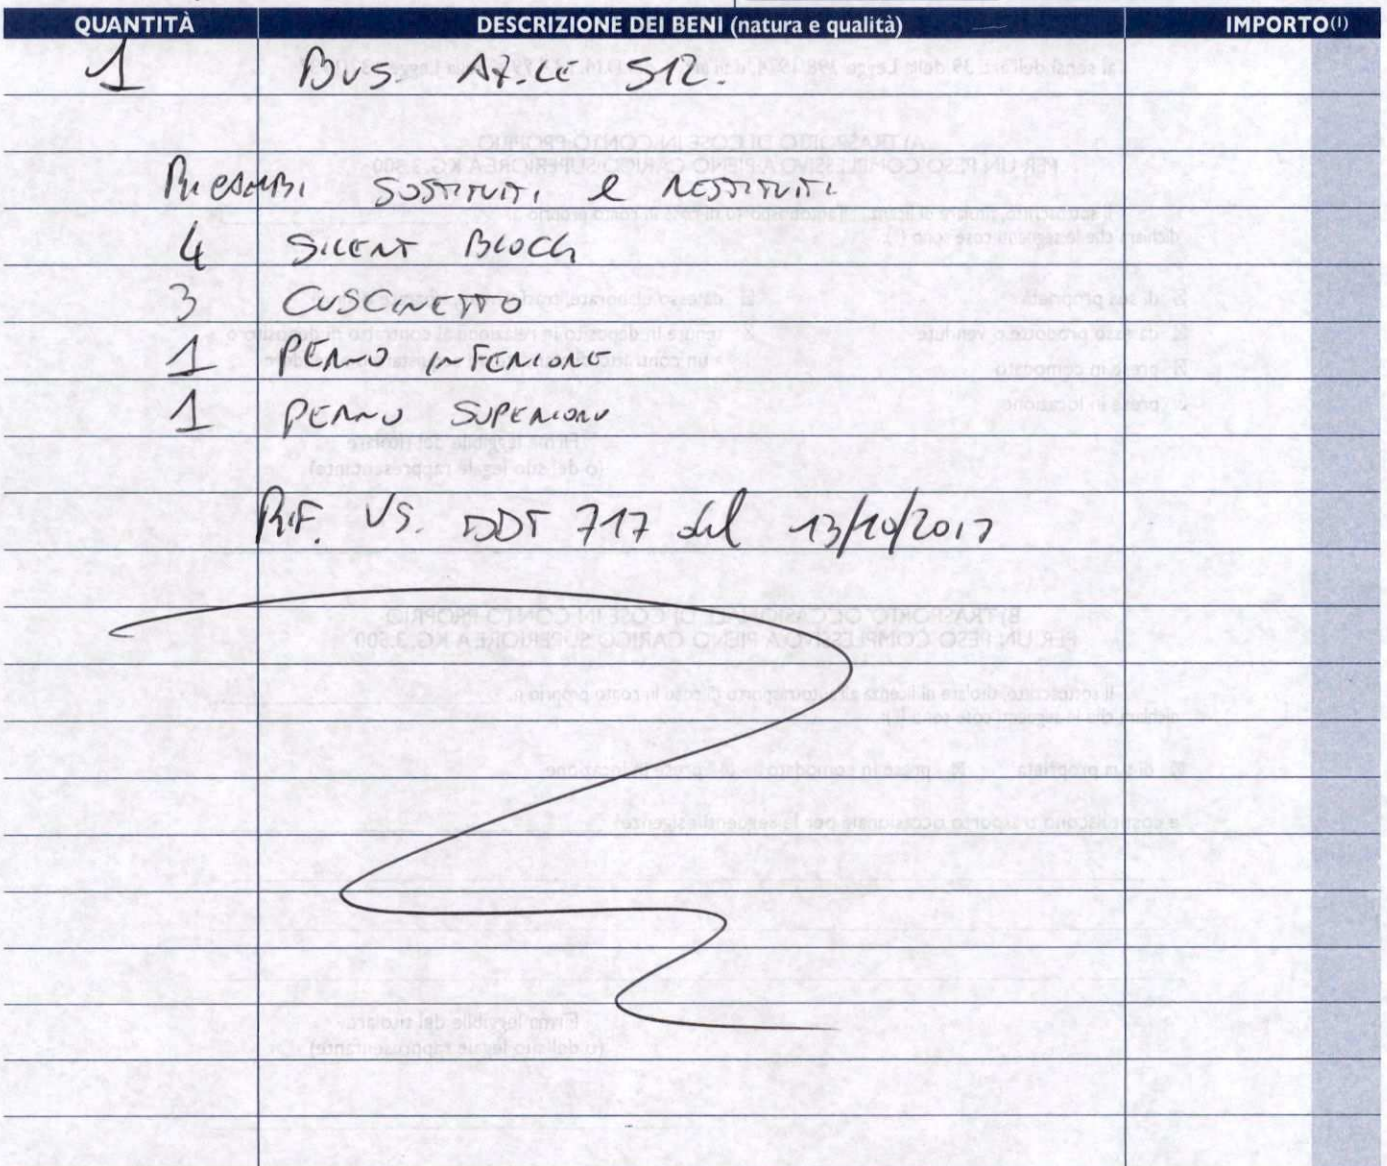 QUANTITÀ DESCRIZIONE DEI BENI (natura e qualità) IMPORTO(1)
1 BUS. 512.
RICAMBI SOSTITUITI e RESTITUITI
4 SILENT BLOCK
3 CUSCINETTO
1 PERNO INFERIORE
1 PERNO SUPERIORE
RIF. VS. DDT 717 del 13/10/2017